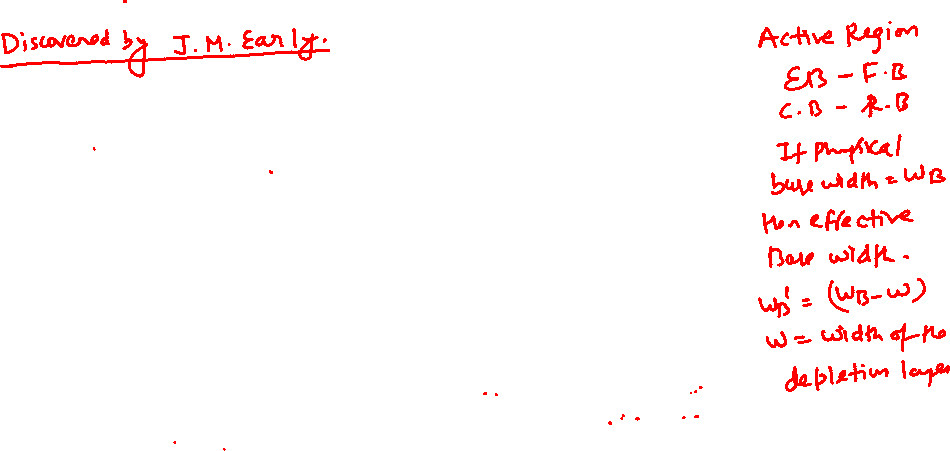 Discovered by J.M. Early.
Active Region
EB - F.B
C.B - R.B
If physical
base width = WB
then effective
Base width.
WB' = (WB-W)
W = width of the
depletion layer